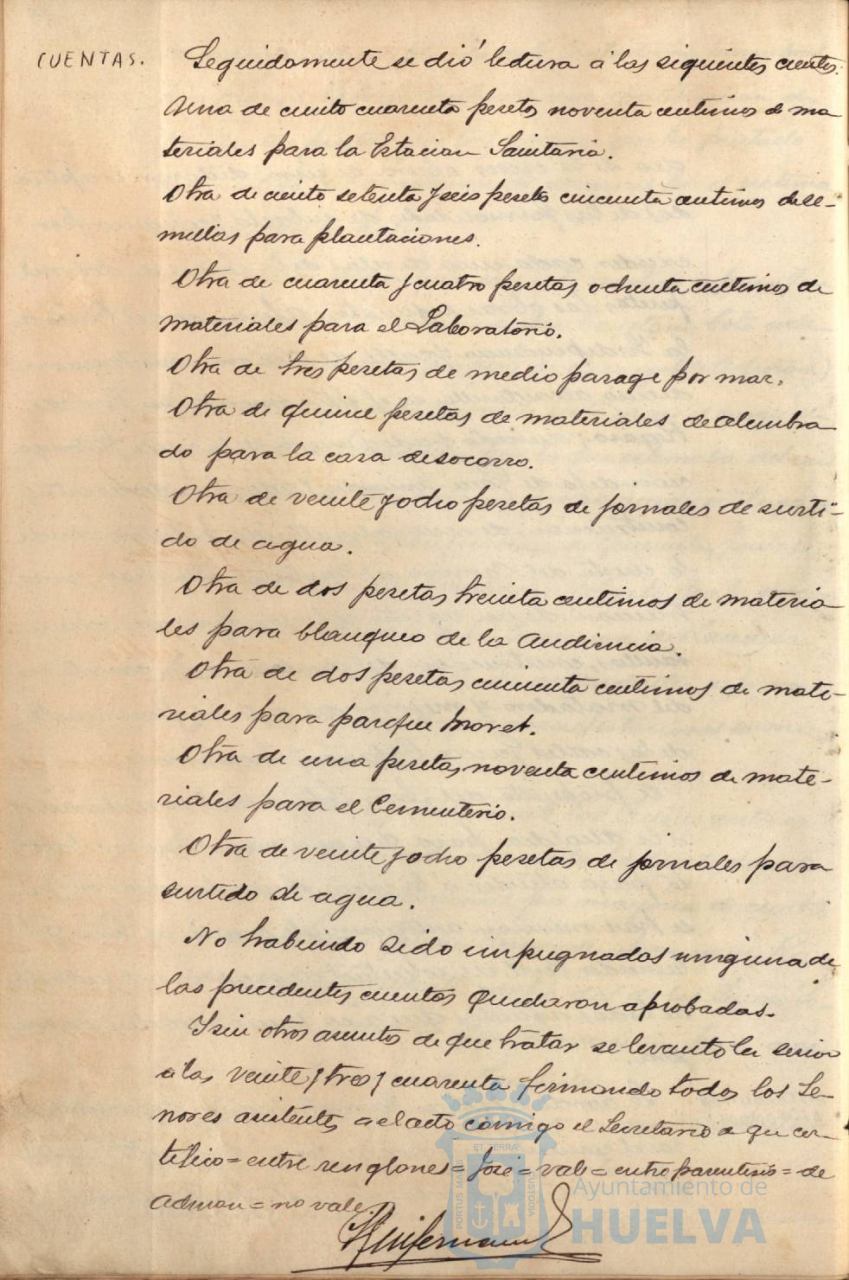 CUENTAS.
Seguidamente se dió lectura á las siguientes cuentas.
Una de ciento cuarenta pesetas noventa centimos de ma
teriales para la Estacion Sanitaria.
Otra de ciento setenta y seis pesetas cincuenta centimos de se-
millas para plantaciones.
Otra de cuarenta y cuatro pesetas ochenta centimos de
materiales para el Laboratorio.
Otra de tres pesetas de medio parage por mar.
Otra de quince pesetas de materiales de alumbra
do para la casa de socorro.
Otra de veinte y ocho pesetas de jornales de surti-
do de agua.
Otra de dos pesetas treinta centimos de materia
les para blanqueo de la Audiencia.
Otra de dos pesetas cincuenta centimos de mate-
riales para parque Moret.
Otra de una peseta noventa centimos de mate-
riales para el Cementerio.
Otra de veinte y ocho pesetas de jornales para
surtido de agua.
No habiendo sido impugnadas ninguna de
las precedentes cuentas quedaron aprobadas.
Y sin otros asuntos de que tratar se levanto la sesion
a las veinte y tres y cuarenta firmando todos los Se-
ñores asistentes a el acto comigo el Secretario de que cer-
tifico = entre renglones = José = vale = entre parentesis = de
admon = no vale
Ayuntamiento de
HUELVA